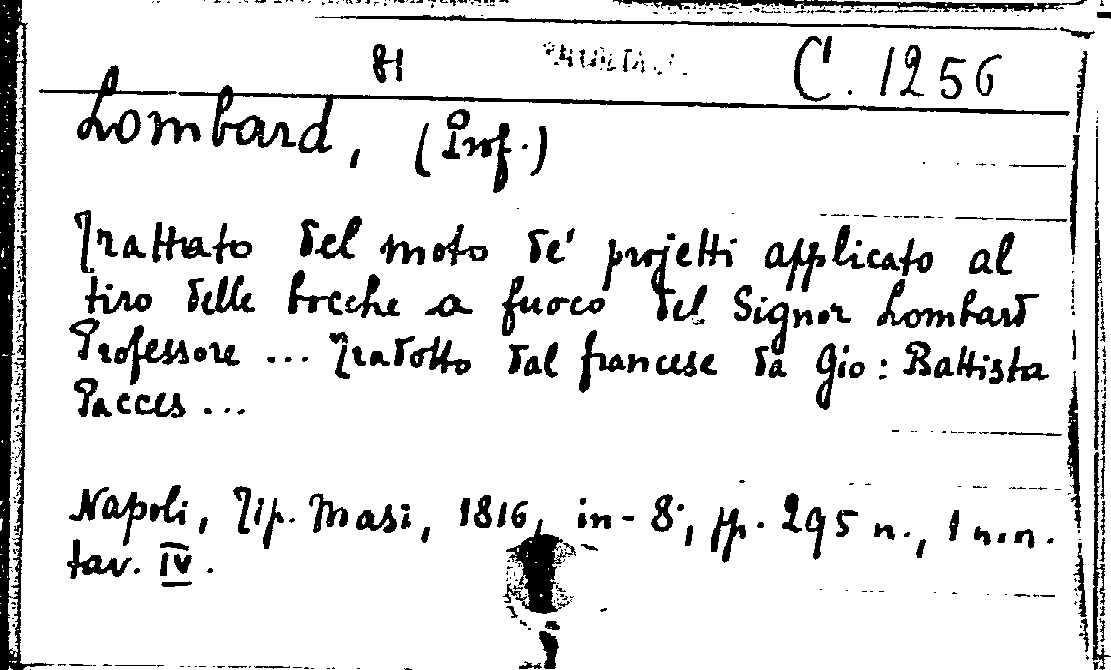 81 C. 1256
Lombard, (Prof.)
Trattato del moto de' projetti applicato al
tiro delle bocche a fuoco del Signor Lombard
Professore ... Tradotto dal francese da Gio: Battista
Pacces ...
Napoli, Tip. Masi, 1816, in-8°, pp. 295 n., 1 n.n.
tav. IV.